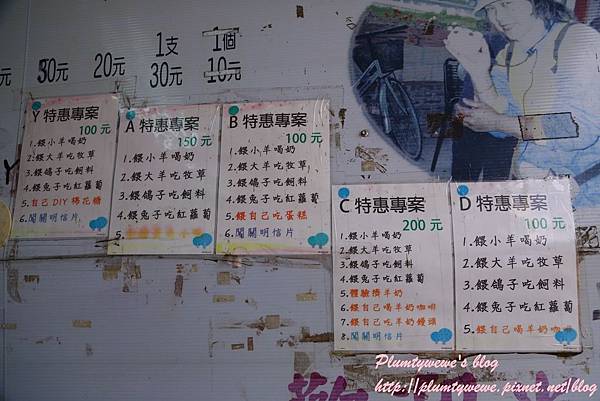 50元 20元 1支 1個
30元 10元
Y 特惠專案
100 元
1.餵小羊喝奶
2.餵大羊吃牧草
3.餵鴿子吃飼料
4.餵兔子吃紅蘿蔔
5.自己DIY 棉花糖
6.闖關明信片
A 特惠專案
150 元
1.餵小羊喝奶
2.餵大羊吃牧草
3.餵鴿子吃飼料
4.餵兔子吃紅蘿蔔
B 特惠專案
100 元
1.餵小羊喝奶
2.餵大羊吃牧草
3.餵鴿子吃飼料
4.餵兔子吃紅蘿蔔
5.餵自己吃蛋糕
6.闖關明信片
C 特惠專案
200 元
1.餵小羊喝奶
2.餵大羊吃牧草
3.餵鴿子吃飼料
4.餵兔子吃紅蘿蔔
5.體驗擠羊奶
6.餵自己喝羊奶咖啡
7.餵自己吃羊奶饅頭
8.闖關明信片
D 特惠專案
100 元
1.餵小羊喝奶
2.餵大羊吃牧草
3.餵鴿子吃飼料
4.餵兔子吃紅蘿蔔
5.餵自己喝羊奶咖啡
Plumtywewe's blog
http://plumtywewe.pixnet.net/blog